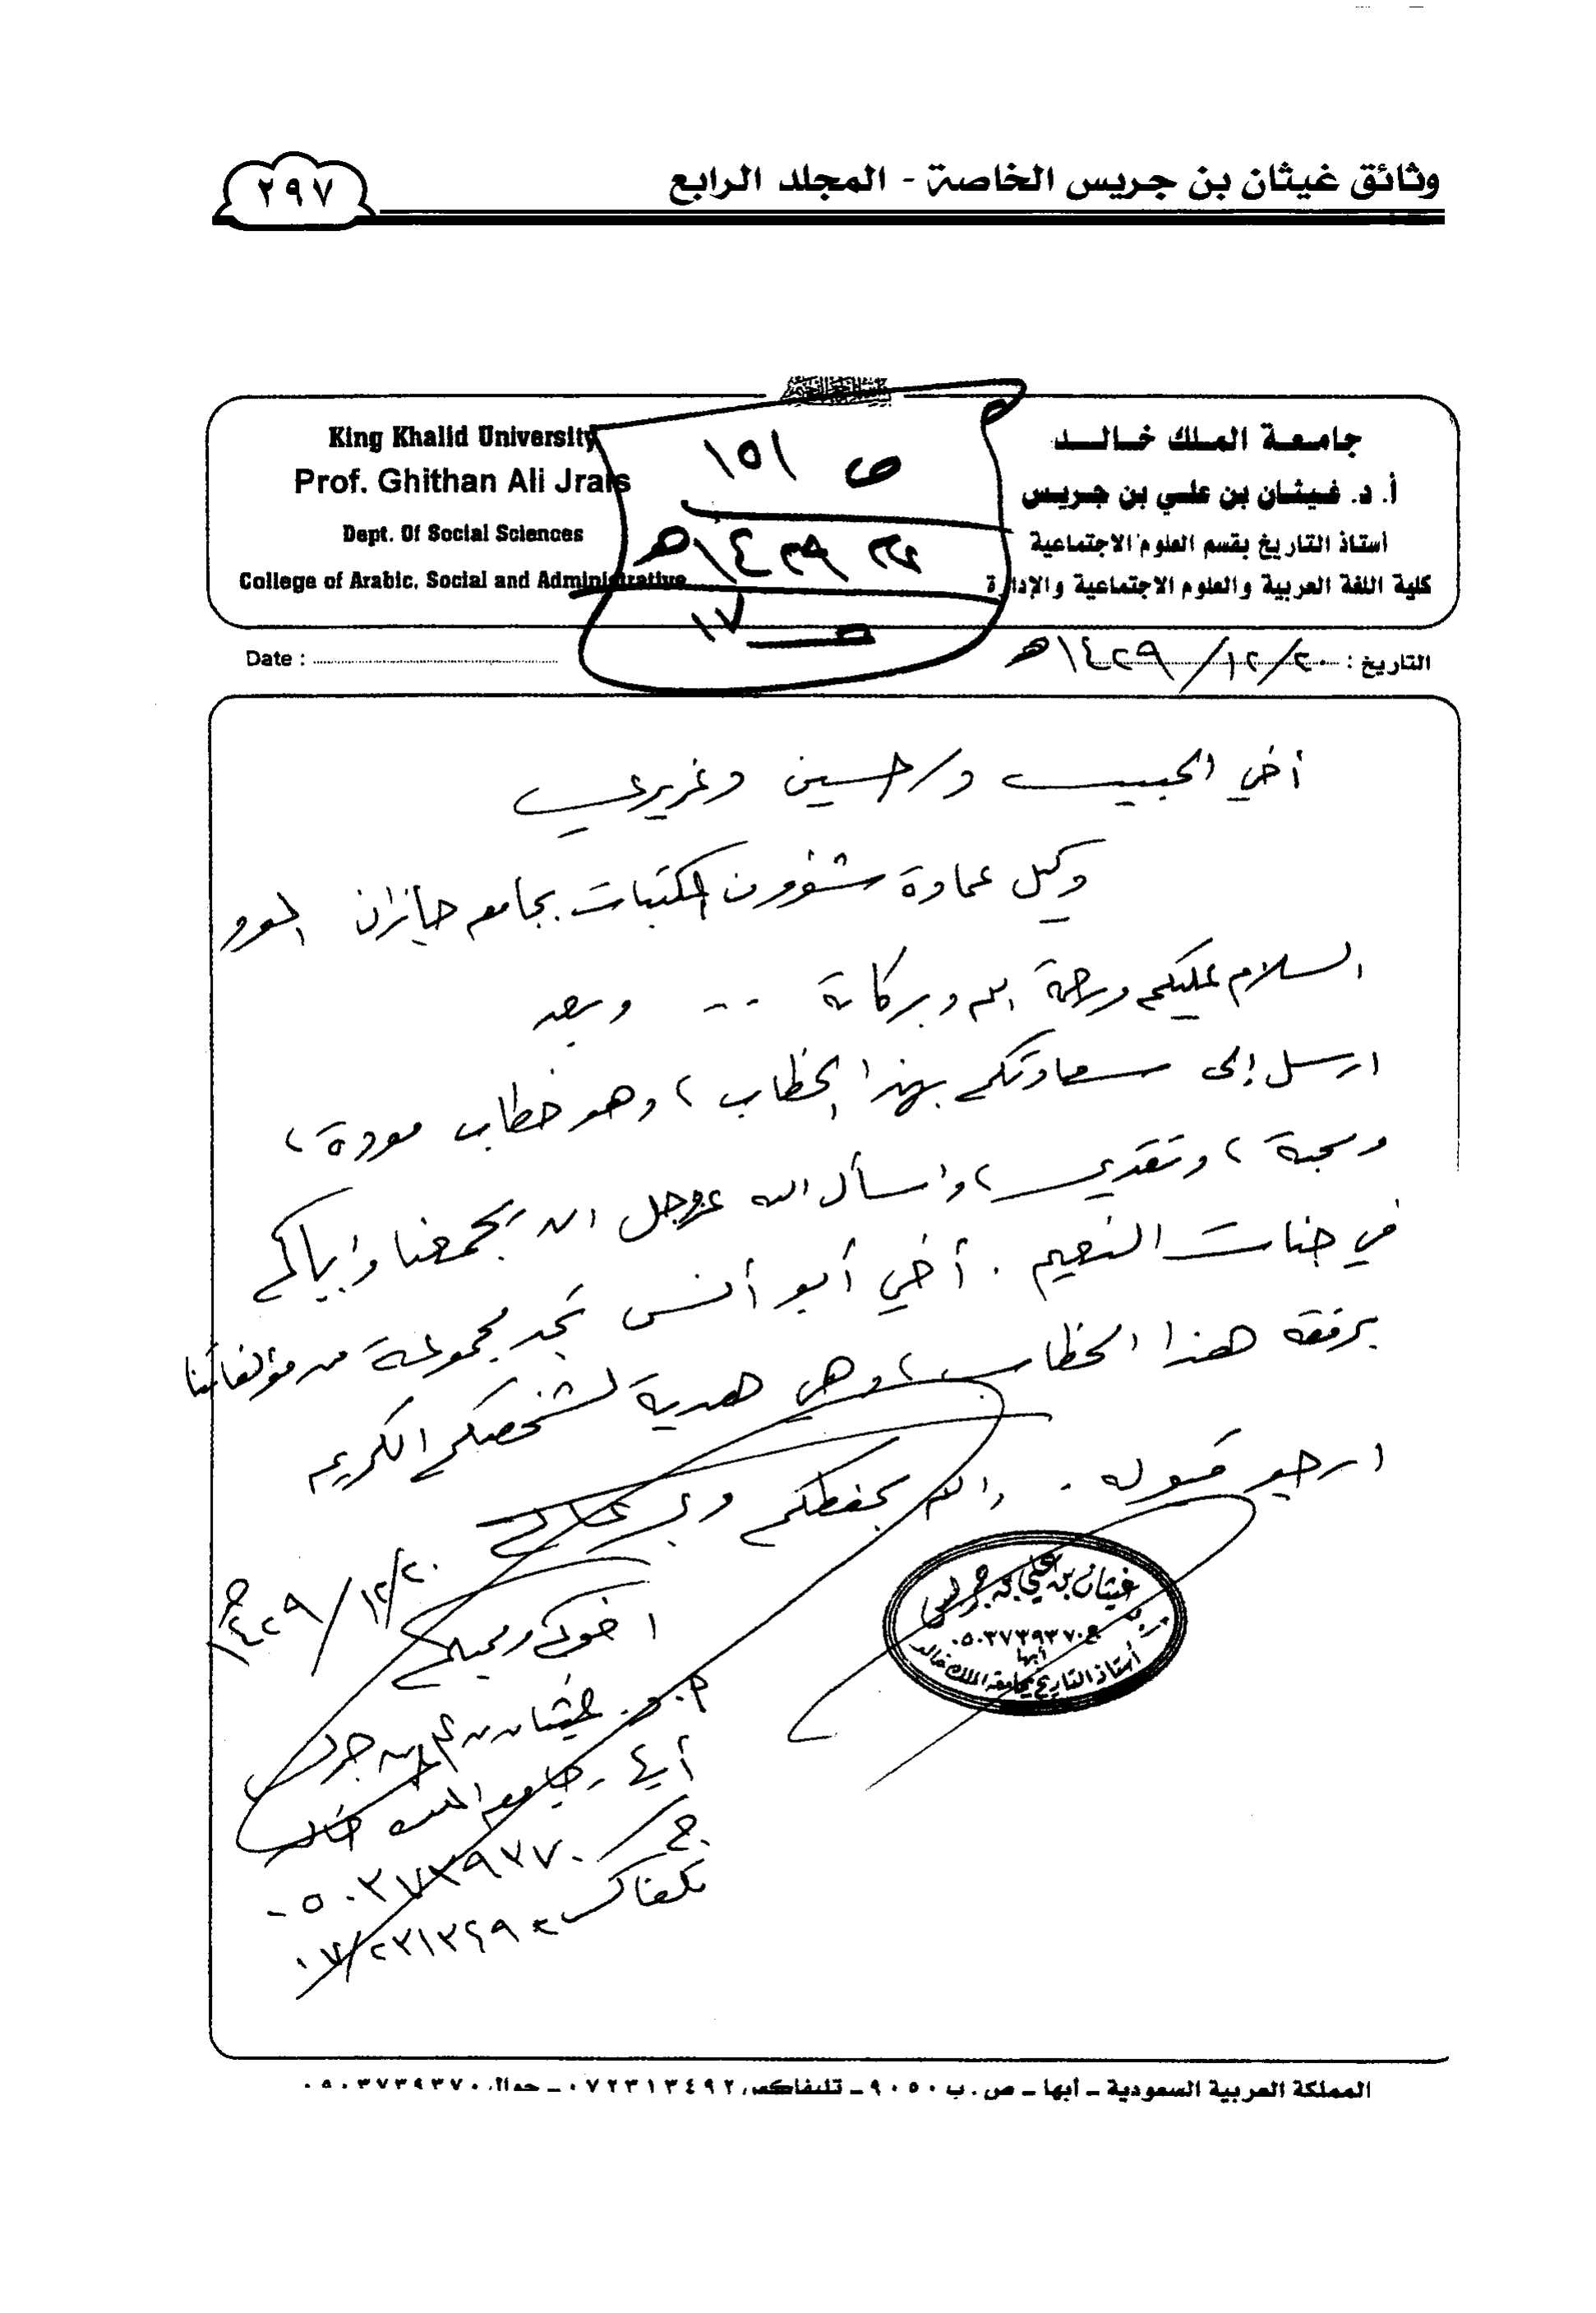 وثائق غيثان بن جريس الخاصة - المجلد الرابع
٢٩٧
جامعة الملك خالد
أ. د. غيثان بن علي بن جريس
أستاذ التاريخ بقسم العلوم الاجتماعية
كلية اللغة العربية والعلوم الاجتماعية والإدارة
King Khalid University
Prof. Ghithan Ali Jrais
Dept. Of Social Sciences
College of Arabic, Social and Administrative
ص ١٥١
١٤٣٩هـ
١٧
التاريخ : ٢٠/١٢/١٤٢٩هـ
Date :
أخي الحبيب د/حسين دغريري
وكيل عمادة شؤون المكتبات بجامعة جازان الموقر
السلام عليكم ورحمة الله وبركاته ... وبعد
ارسل إلى سعادتكم بهذا الخطاب، وهو خطاب مودة،
ومحبة، وتقدير، واسأل الله عزوجل ان يجمعنا وإياكم
في جنات النعيم. أخي أبو أنس تجد مجموعة من مؤلفاتنا
برفقة هذا الخطاب، وهي هدية لشخصكم الكريم
ارجو قبوله. والله يحفظكم ويرعاكم
٢٠/١٢/١٤٢٩هـ
اخوكم ومحبكم
أ.د. غيثان بن علي بن جريس
أبها - جامعة الملك خالد
ج/ ٠٥٠٣٧٣٩٣٧٠
تلفاكس
غيثان بن علي بن جريس
٠٥٠٣٧٣٩٣٧٠
أبها
أستاذ التاريخ بجامعة الملك خالد
المملكة العربية السعودية - أبها - ص.ب ٩٠٥٠ - تليفاكس ٠٧٢٣١٣٤٩٢ - جوال ٠٥٠٣٧٣٩٣٧٠